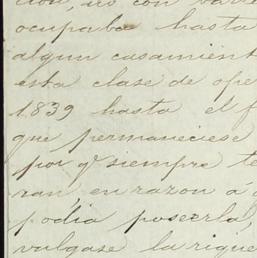 cion, us con
ocupaba hasta
algun casamient
esta clase de ope
1839 hasta el f
que permaneciese
por q.e siempre te
ran, en razon á
podia poseerla,
vulgase la rique